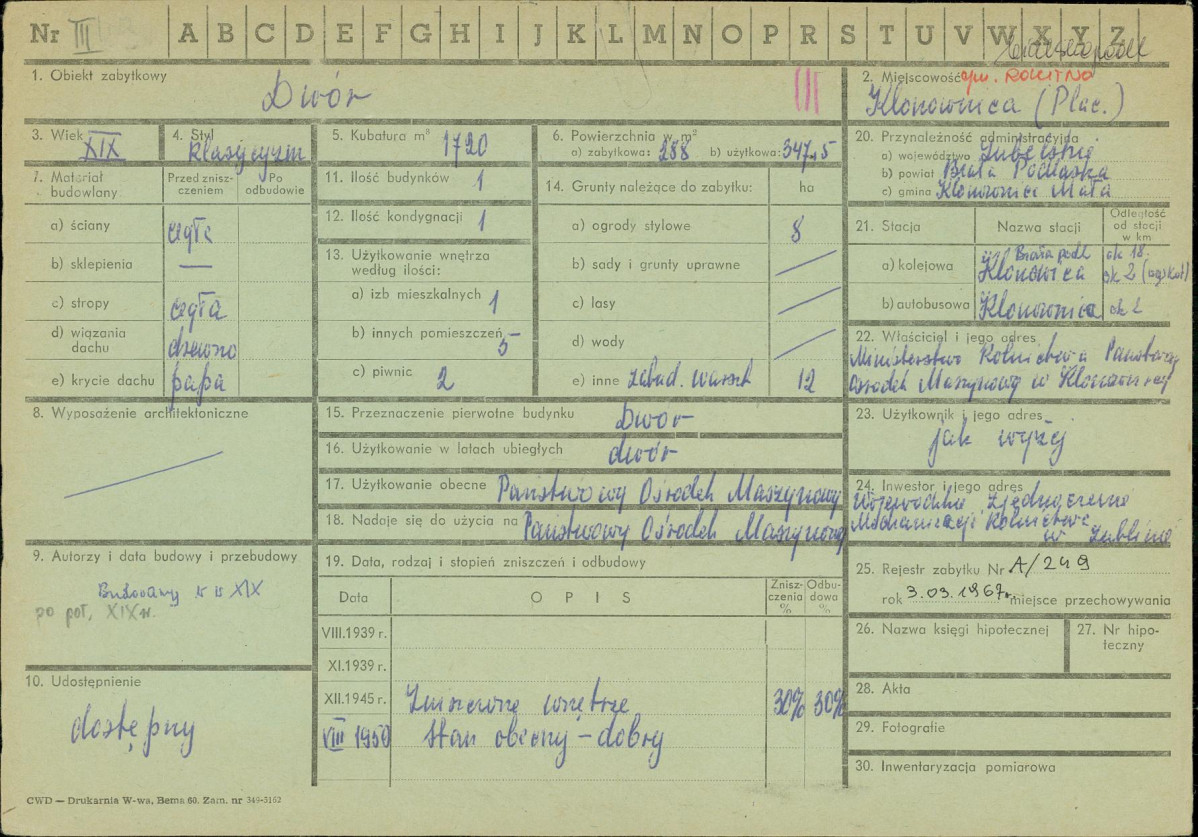 Nr III A B C D E F G H I J K L M N O P R S T U V W X Y Z
1. Obiekt zabytkowy
Dwór
III
2. Miejscowość gm. ROKITNO
Klonownica (Plac.)
3. Wiek XIX
4. Styl klasycyzm
5. Kubatura m³ 1720
6. Powierzchnia w m²
a) zabytkowa: 288 b) użytkowa: 347,5
20. Przynależność administracyjna
a) województwo Lubelskie
b) powiat Biała Podlaska
c) gmina Klonownica Mała
7. Materiał budowlany
Przed zniszczeniem
Po odbudowie
a) ściany cegła
b) sklepienia —
c) stropy cegła
d) wiązania dachu drewno
e) krycie dachu papa
11. Ilość budynków 1
12. Ilość kondygnacji 1
13. Użytkowanie wnętrza
według ilości:
a) izb mieszkalnych 1
b) innych pomieszczeń 5
c) piwnic 2
14. Grunty należące do zabytku: ha
a) ogrody stylowe 8
b) sady i grunty uprawne
c) lasy
d) wody
e) inne zabud. warszt 12
21. Stacja
Nazwa stacji
Odległość od stacji w km
a) kolejowa Biała podl ok 18
Klonowica ok 2
b) autobusowa Klonownica ok 2
22. Właściciel i jego adres
Ministerstwo Rolnictwa Państwowy
Ośrodek Maszynowy w Klonownicy
8. Wyposażenie architektoniczne
15. Przeznaczenie pierwotne budynku Dwór
16. Użytkowanie w latach ubiegłych dwór
17. Użytkowanie obecne Państwowy Ośrodek Maszynowy
18. Nadaje się do użycia na Państwowy Ośrodek Maszynowy
23. Użytkownik i jego adres
jak wyżej
24. Inwestor i jego adres
Wojewódzkie Zjednoczenie
Mechanizacji Rolnictwa
w Lublinie
9. Autorzy i data budowy i przebudowy
Budowany w w XIX
po poł. XIX w.
19. Data, rodzaj i stopień zniszczeń i odbudowy
Data
OPIS
Zniszczenia %
Odbudowa %
VIII.1939 r.
XI.1939 r.
XII.1945 r. Zniszczone wnętrze 30% 30%
VIII 1950 Stan obecny – dobry
25. Rejestr zabytku Nr A/249
rok 3.03.1967r. miejsce przechowywania
26. Nazwa księgi hipotecznej
27. Nr hipoteczny
10. Udostępnienie
dostępny
28. Akta
29. Fotografie
30. Inwentaryzacja pomiarowa
CWD — Drukarnia W-wa, Bema 60. Zam. nr 349-5162